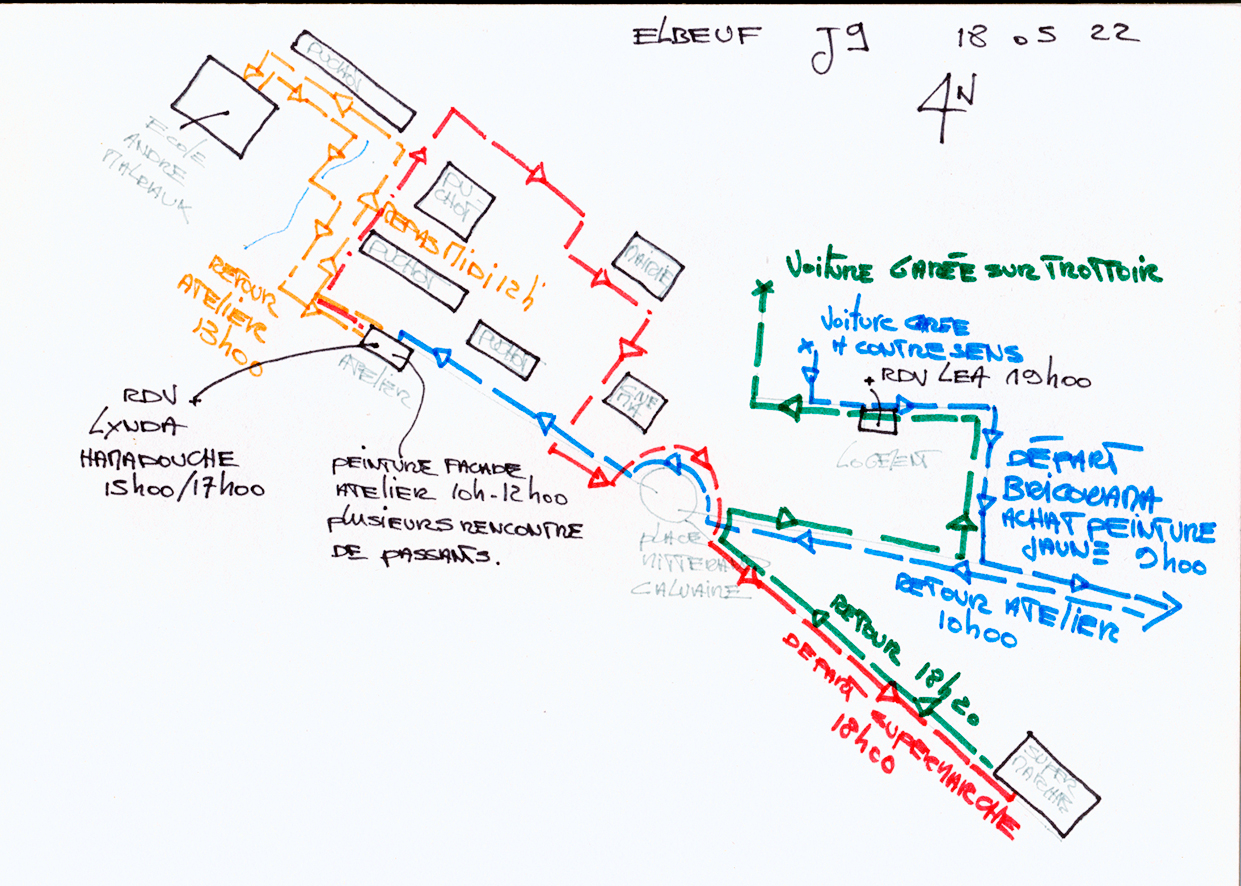 ELBEUF J9 18 05 22
N
PUCHOT
ECOLE
ANDRE
MALRAUX
PU-
CHOT
REPAS MIDI 12h
PUCHOT
PUCHOT
MAIRIE
CINE
MA
RETOUR
ATELIER
13h00
ATELIER
RDV
LYNDA
HAMADOUCHE
15h00/17h00
PEINTURE FACADE
ATELIER 10h-12h00
PLUSIEURS RENCONTRE
DE PASSANTS.
VOITURE GARÉE SUR TROTTOIR
VOITURE GAREE
A CONTRE SENS
RDV LEA 19h00
LOGEMENT
DÉPART
BRICORAMA
ACHAT PEINTURE
JAUNE 9h00
RETOUR ATELIER
10h00
PLACE
MITTERAND
CALVAIRE
RETOUR 18h20
DEPART SUPERMARCHE
18h00
SUPER
MARCHE